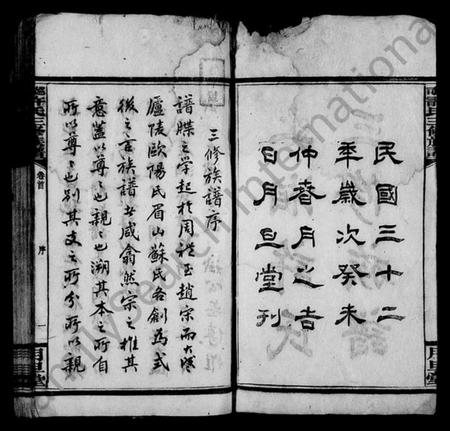 民國三十二
年歲次癸未
仲春月之吉
日月旦堂刊
許氏三修族譜
月旦堂
三修族譜序
譜牒之學起於周禮至趙宗而大盛
廬陵歐陽氏眉山蘇氏各創為式
後之言族譜者咸翕然宗之推其
意蓋以尊尊也親親也溯其本之所自
所以尊尊也別其支之所分所以親
許氏三修族譜
卷首
序
一
月旦堂
FamilySearch International